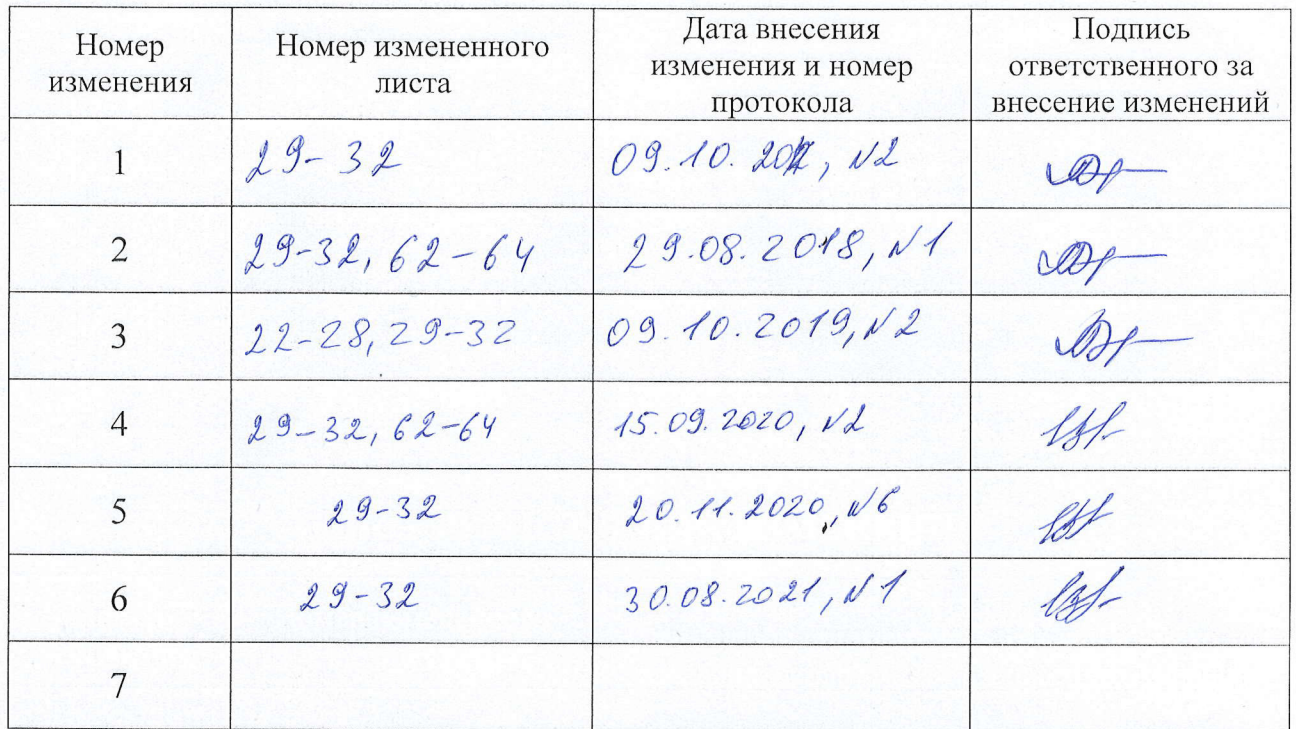 Номер изменения
Номер измененного листа
Дата внесения изменения и номер протокола
Подпись ответственного за внесение изменений
1 29-32 09.10. N2
2 29-32, 62-64 29.08.2018, N1
3 22-28, 29-32 09.10.2019, N2
4 29-32, 62-64 15.09.2020, N2
5 29-32 20.11.2020, N6
6 29-32 30.08.2021, N1
7